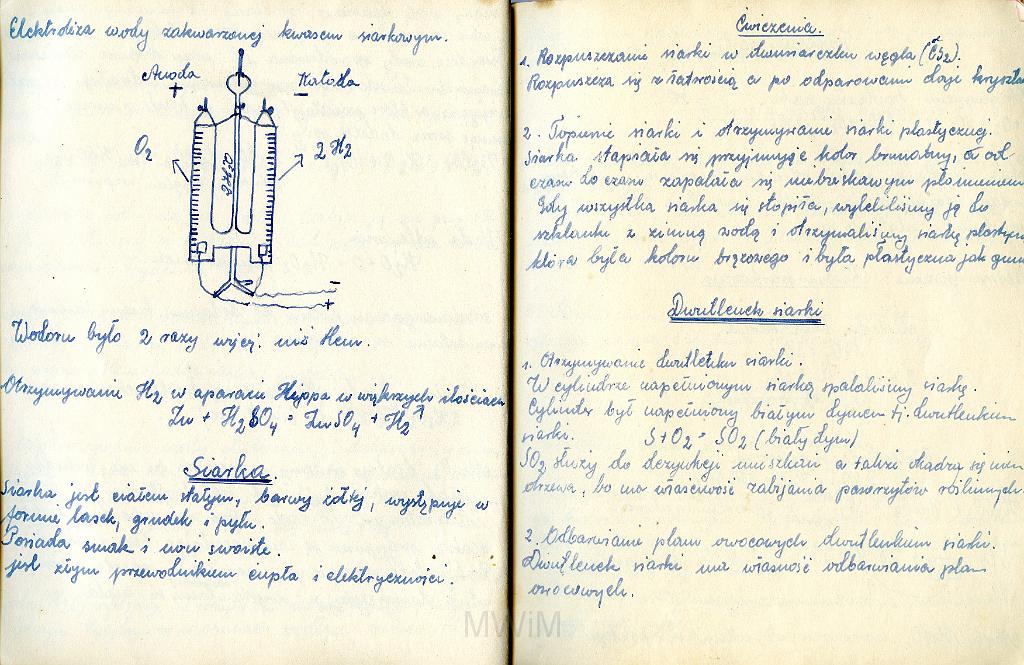 Elektroliza wody zakwaszonej kwasem siarkowym.
Anoda Katoda
+ −
O2 2H2
2H2O
−
+
Wodoru było 2 razy więcej niż tlenu.
Otrzymywanie H2 w aparacie Kippa w większych ilościach
Zn + H2SO4 = ZnSO4 + H2↑
Siarka.
Siarka jest ciałem stałym, barwy żółtej, występuje w
formie lasek, grudek i pyłu.
Posiada smak i woń swoiste.
jest złym przewodnikiem ciepła i elektryczności.
Ćwiczenia.
1. Rozpuszczanie siarki w dwusiarczku węgla (CS2).
Rozpuszcza się z łatwością a po odparowaniu daje kryszta
2. Topienie siarki i otrzymywanie siarki plastycznej.
Siarka stapiała się przyjmując kolor brunatny, a od
czasu do czasu zapalała się niebieskawym płomieniem
Gdy wszystka siarka się stopiła, wyleliliśmy ją do
szklanki z zimną wodą i otrzymaliśmy siarkę plastyczn
która była koloru brązowego i była plastyczna jak gum
Dwutlenek siarki
1. Otrzymywanie dwutlenku siarki.
W cylindrze napełnionym siarką spalaliśmy siarkę.
Cylinder był napełniony białym dymem tj. dwutlenkiem
siarki. S + O2 = SO2 (biały dym)
SO2 służy do dezynfekcji mieszkań a także okadza się nim
drzewa, bo ma właściwość zabijania pasorzytów roślinnych.
2. Odbarwianie plam owocowych dwutlenkiem siarki.
Dwutlenek siarki ma własność odbarwiania plam
owocowych.
MWiM